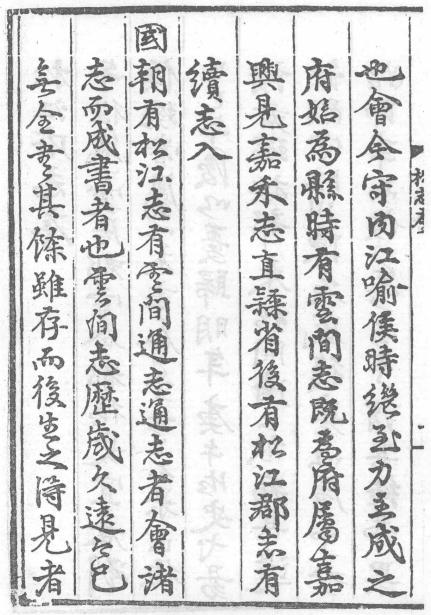 也會今守内江喻侯時繼至力主成之
府始爲縣時有雲間志既爲府屬嘉
興見嘉禾志直隸省後有松江郡志有
續志入
國朝有松江志有雲間通志通志者會諸
志而成書者也雲間志歷歲久遠今已
無全書其餘雖存而後生之得見者